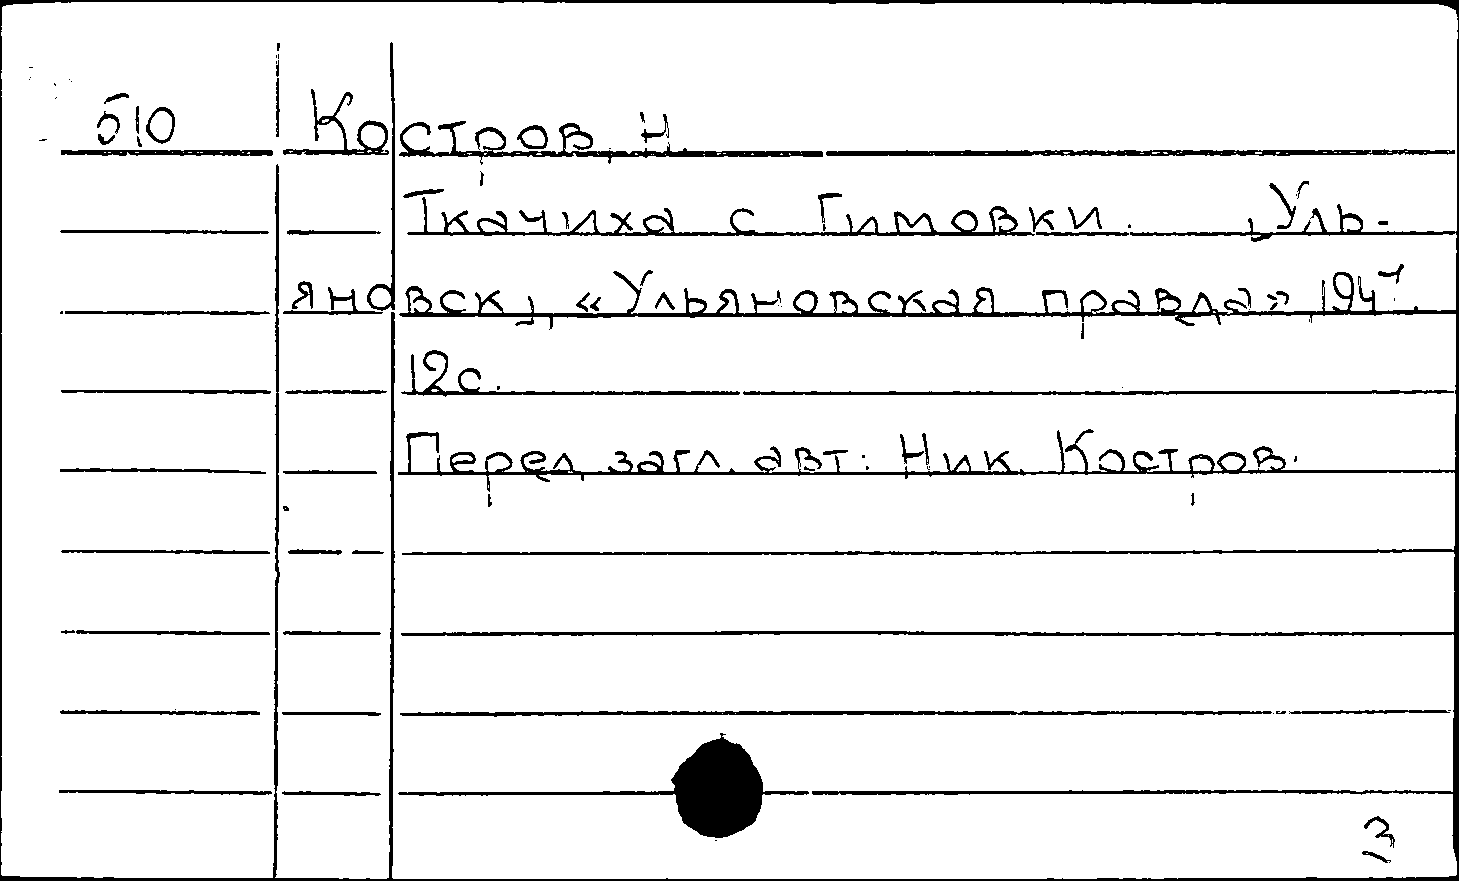 510 Костров, Н.
Ткачиха с Гимовки. [Уль-
яновск], «Ульяновская правда», 1947.
12 с.
Перед загл. авт: Ник. Костров.
3